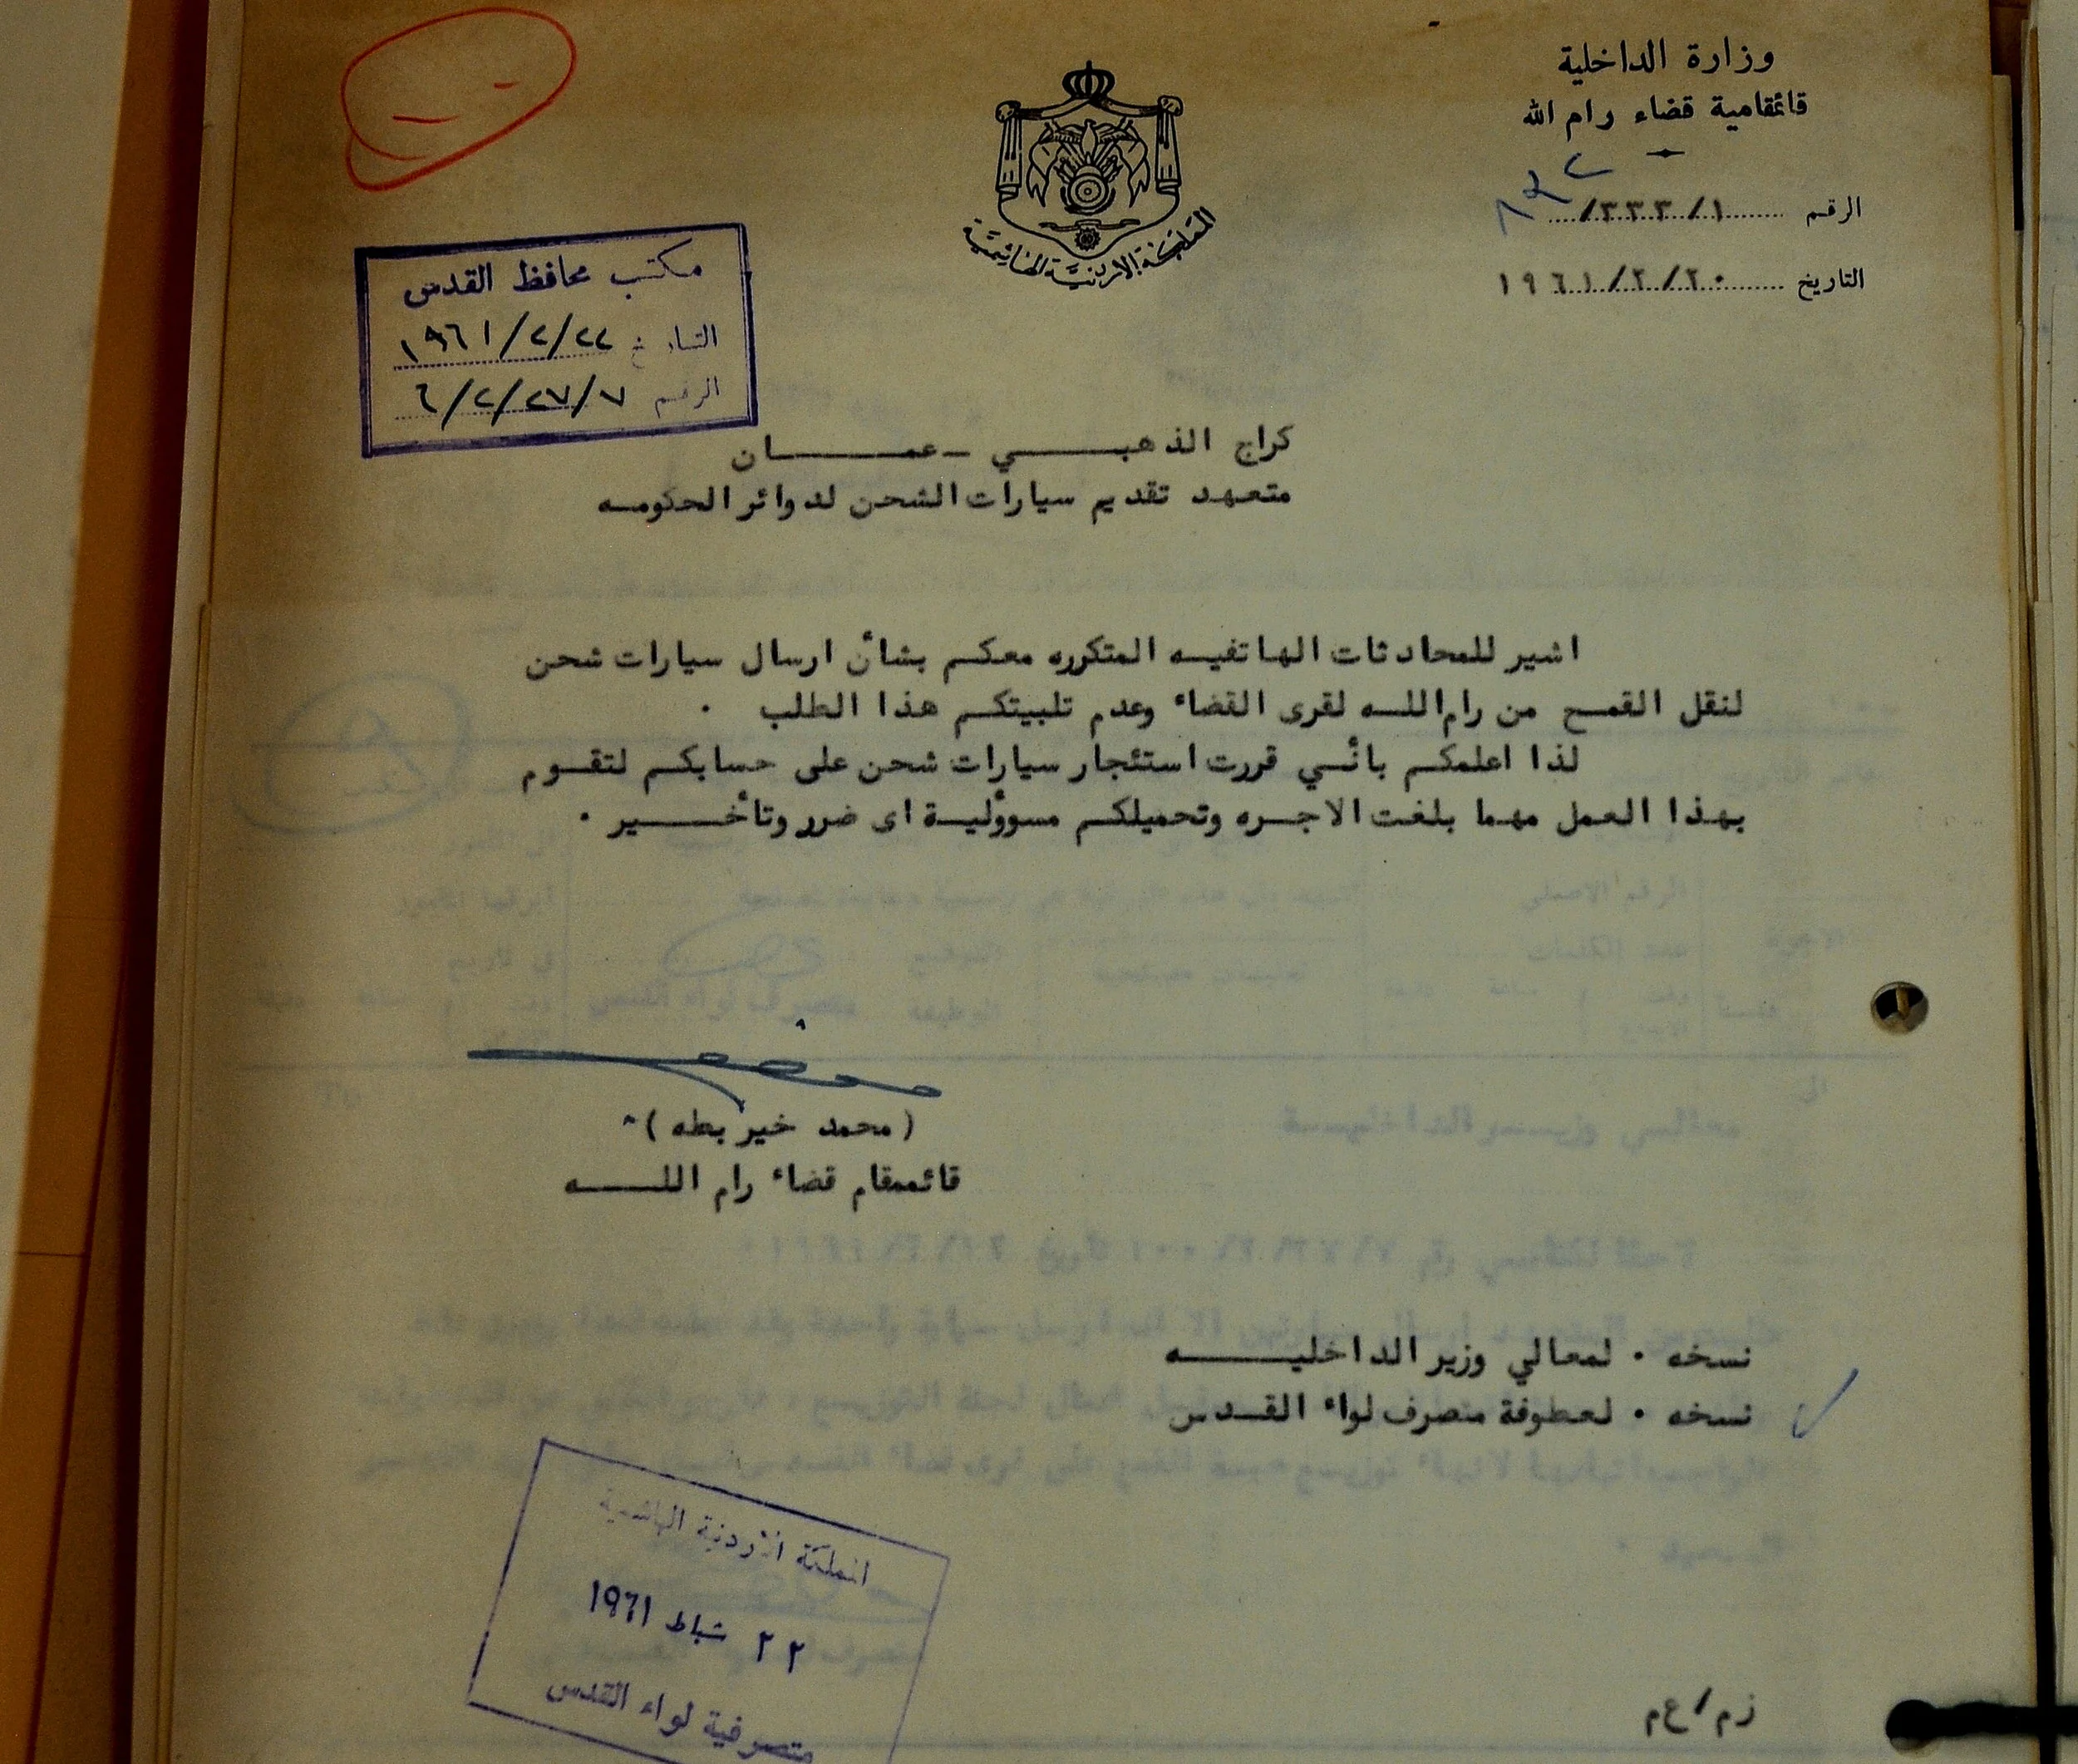 وزارة الداخلية
قائمقامية قضاء رام الله
الرقم ١/٣٣٣/
التاريخ ٢٠/٢/١٩٦١
المملكة الاردنية الهاشمية
مكتب محافظ القدس
التاريخ ٢٢/٢/١٩٦١
الرقم ٧/٢٧/٢/٦
كراج الذهبي - عمان
متعهد تقديم سيارات الشحن لدوائر الحكومه
اشير للمحادثات الهاتفيه المتكرره معكم بشأن ارسال سيارات شحن
لنقل القمح من رام الله لقرى القضاء وعدم تلبيتكم هذا الطلب .
لذا اعلمكم بأنني قررت استئجار سيارات شحن على حسابكم لتقوم
بهذا العمل مهما بلغت الاجره وتحميلكم مسوؤلية اى ضرر وتأخير .
(محمد خير بطه)
قائممقام قضاء رام الله
نسخه . لمعالي وزير الداخليه
نسخه . لعطوفة متصرف لواء القدس
المملكة الاردنية الهاشمية
٢٢ شباط ١٩٦١
متصرفية لواء القدس
زم/عم